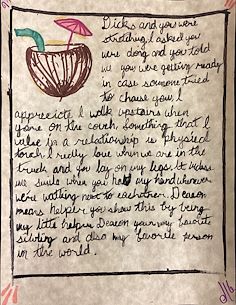 Dicks and you were
stretching I asked you
were doing and you told
me you were getting ready
in case someone tried
to chase you. I
appreicte I walk upstairs when
your on the couch. Something that I
value in a relationship is physical
touch. I really love when we are in the
truck and you lay on my legs. It makes
me smile when you hold my hand whenever
were walking next to eachother. Deacon
means helper you show this by being
my little helper. Deacon your my favorite
sibling and also my favorite person
in the world.